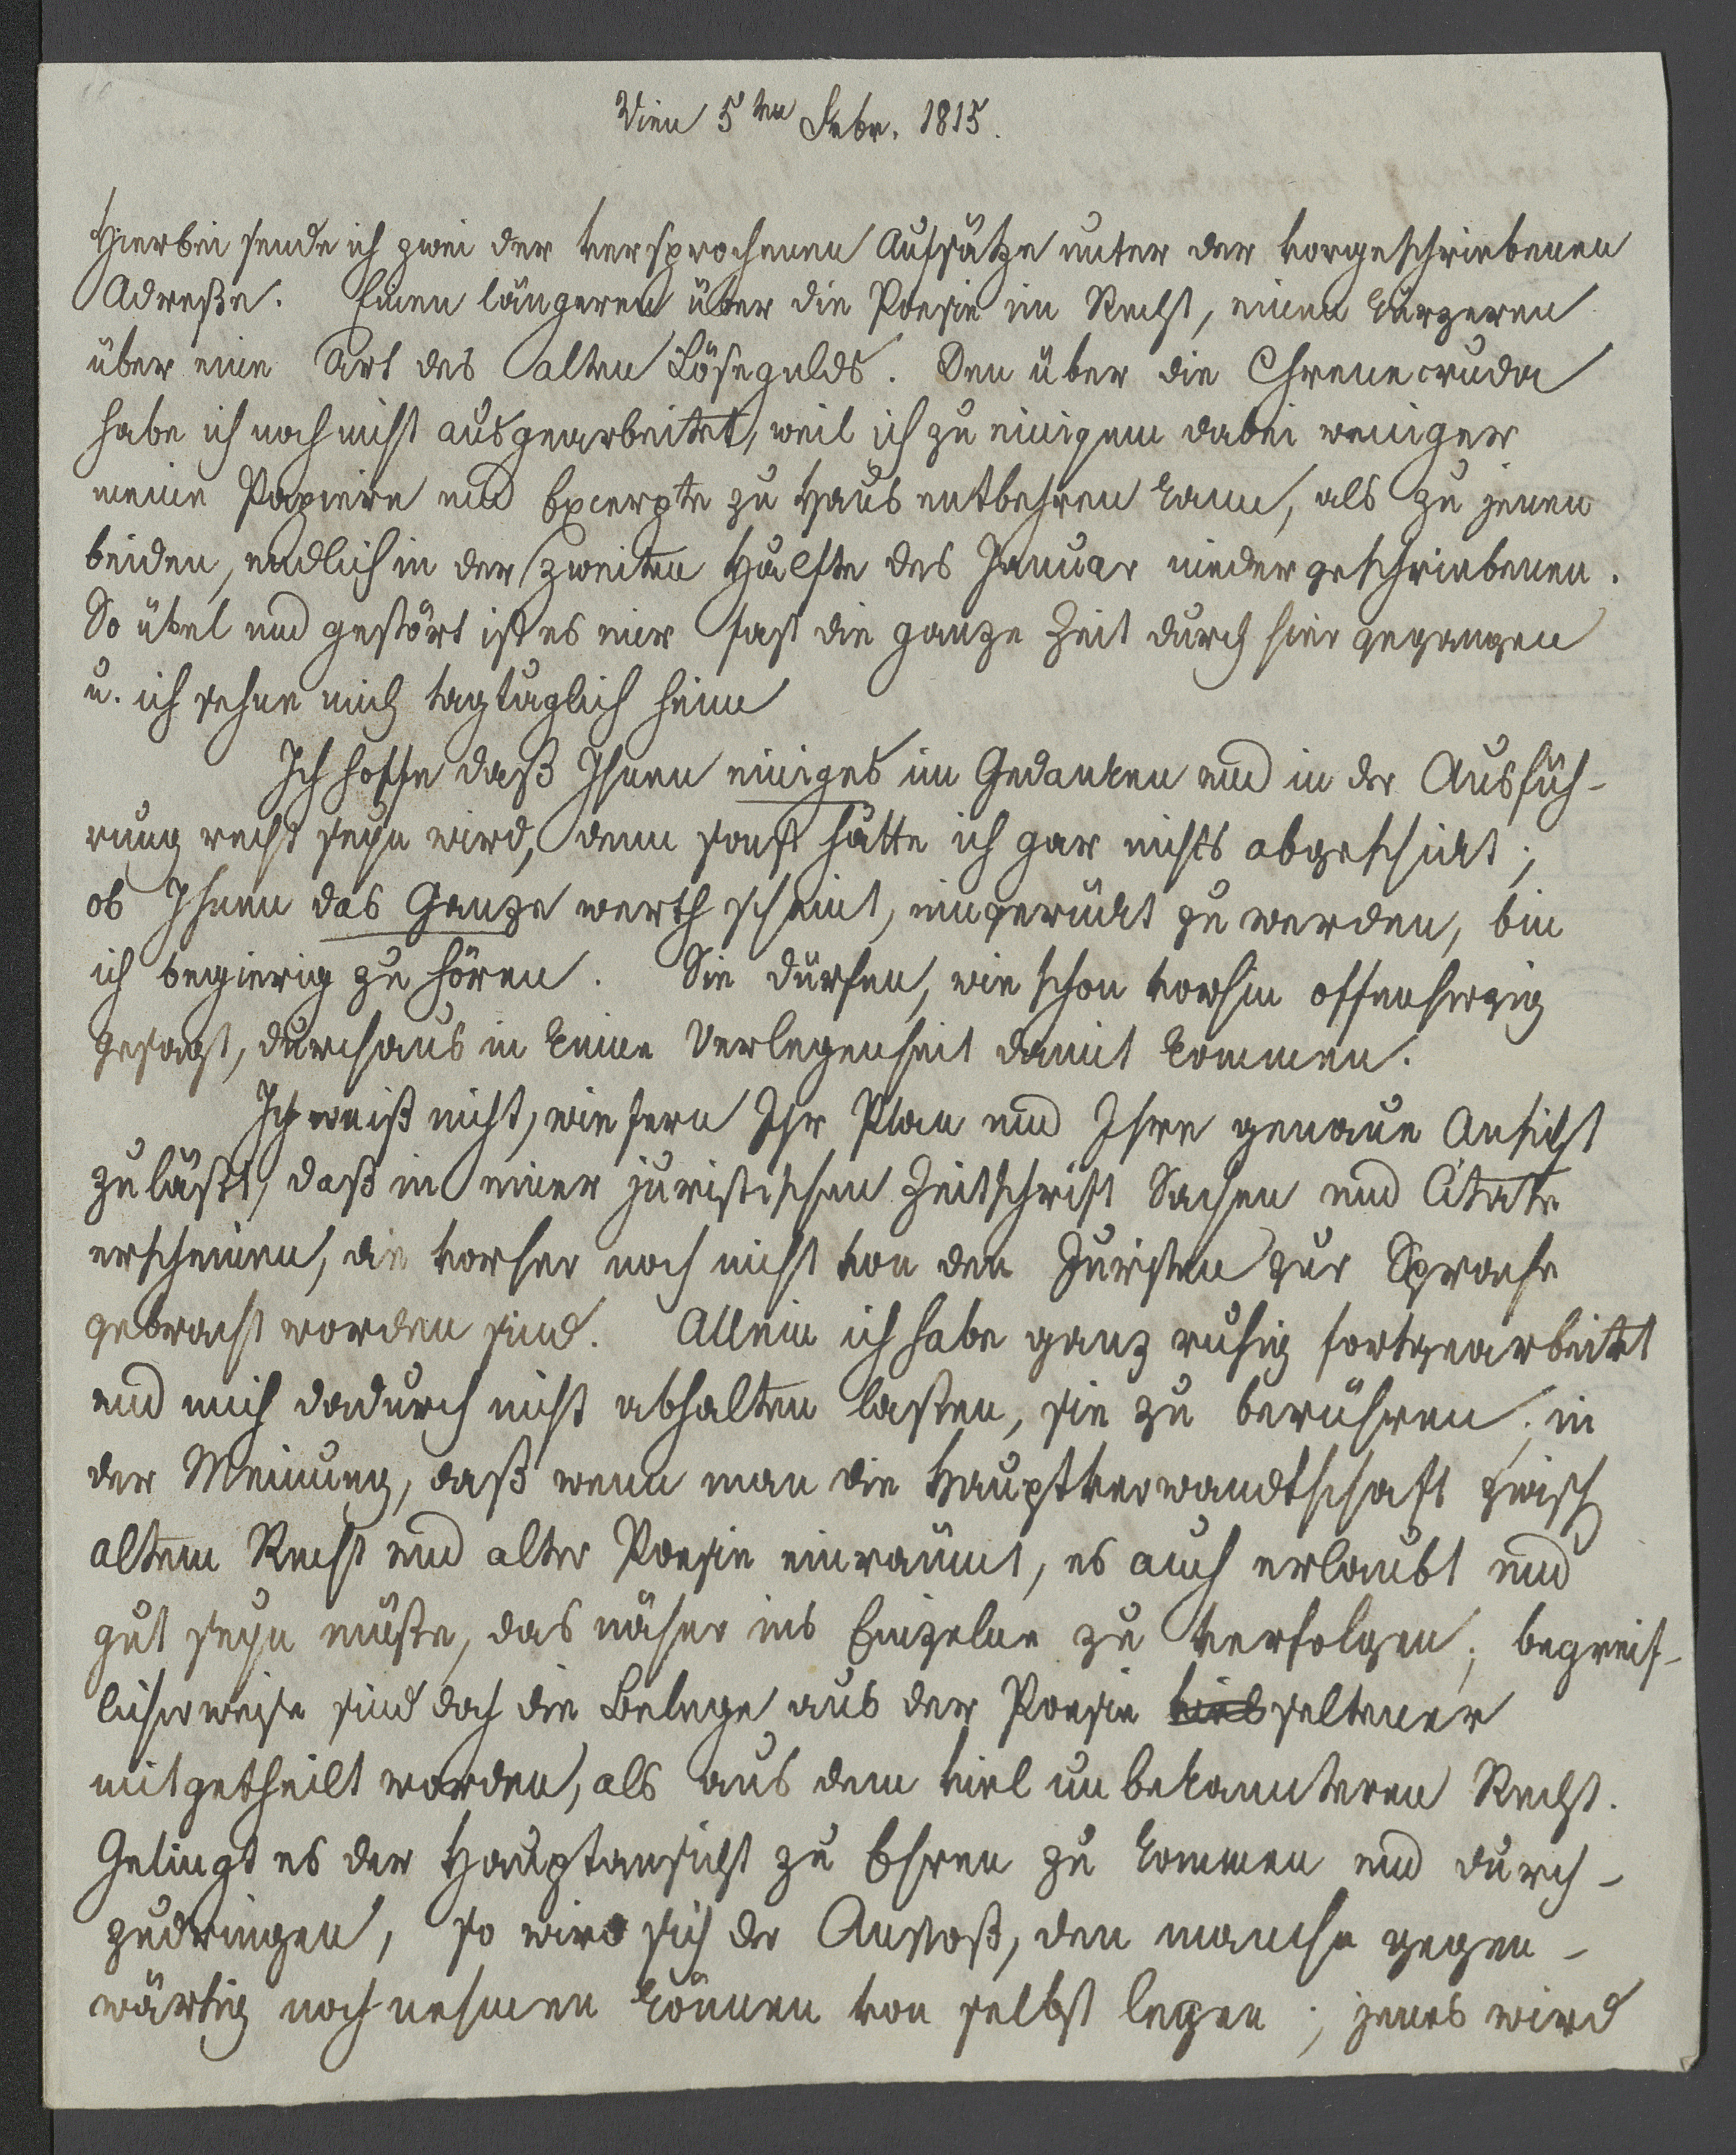 Wien 5ten Febr. 1815.
Hierbei sende ich zwei der versprochenen Aufsätze unter der vorgeschriebenen
Adreße. Einen längeren über die Poesie im Recht, einen kürzeren
über eine Art des alten Lösegelds. Den über die Chrenecruda
habe ich noch nicht ausgearbeitet, weil ich zu einigem dabei weniger
meine Papiere und Excerpte zu Haus entbehren kann, als zu jenen
beiden, endlich in der zweiten Hälfte des Januar niedergeschriebenen.
So übel und gestört ist es mir fast die ganze Zeit durch hier gegangen
u. ich sehne mich tagtäglich heim
Ich hoffe daß Ihnen einiges im Gedanken und in der Ausfüh-
rung recht seyn wird, denn sonst hätte ich gar nichts abgeschickt;
ob Ihnen das Ganze werth scheint, eingerückt zu werden, bin
ich begierig zu hören. Sie dürfen, wie schon vorhin offenherzig
gesagt, durchaus in keine Verlegenheit damit kommen.
Ich weiß nicht, wiefern Ihr Plan und Ihre genaue Ansicht
zuläßt, daß in einer juristischen Zeitschrift Sachen und Citate
erscheinen, die vorher noch nicht von den Juristen zur Sprache
gebracht worden sind. Allein ich habe ganz ruhig fortgearbeitet
und mich dadurch nicht abhalten laßen, sie zu berühren; in
der Meinung, daß wenn man die Hauptverwandtschaft zwisch
altem Recht und alter Poesie einräumt, es auch erlaubt und
gut seyn müßte, das näher ins Einzelne zu verfolgen; begreif-
licherweise sind doch die Belege aus der Poesie viel seltener
mitgetheilt worden, als aus dem viel unbekannteren Recht.
Gelingt es der Hauptansicht zu Ehren zu kommen und durch-
zudringen, so wird sich der Anstoß, den manche gegen-
wärtig noch nehmen können von selbst legen; jenes wird